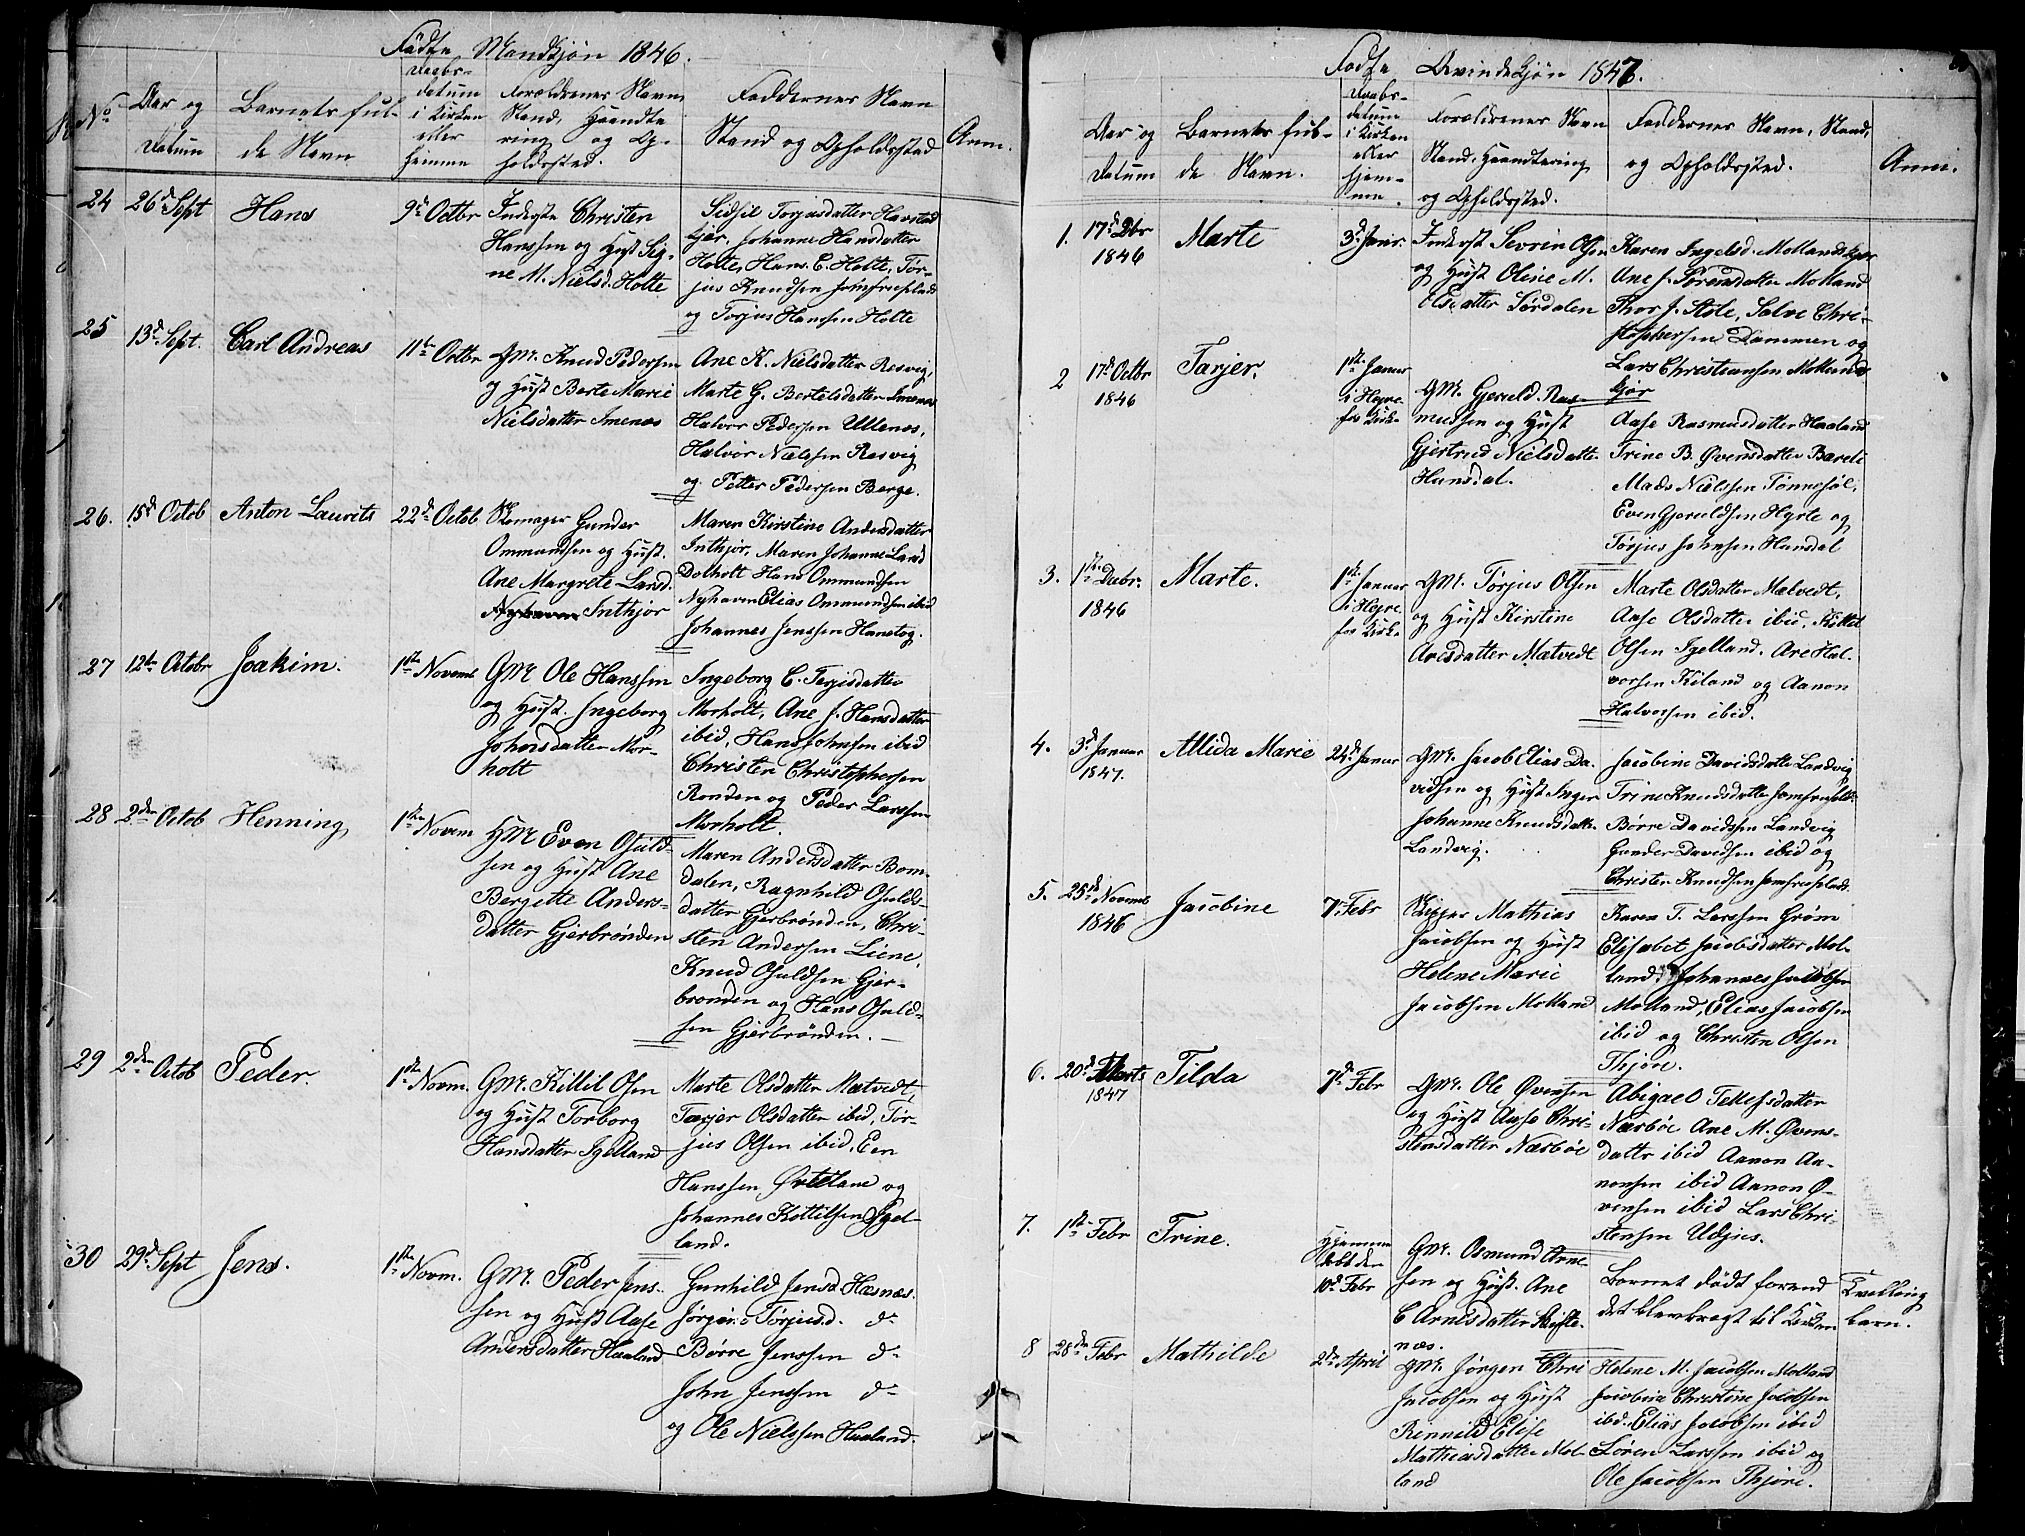 Fødte Mandkjøn 1846.
No
Aar og Datum
Barnets fulde Navn
Daabsdatum i Kirken eller hjemme
Forældrenes Navn, Stand, Haandtering og Opholdssted.
Faddernes Navn Stand og Opholdssted
Anm.
24
26d Sept
Hans
9d Octbr
Inderste Christen
Hanssen og Hust Sig-
ne M. Nielsd. Holte
Sidsil Torjusdatter Havstad
kjer, Johanne Hansdatter
Holte, Hans C. Holte, Tør-
jus Knudsen Jomfrueplads
og Torjus Hansen Holte
25
13d Sept.
Carl Andreas
11te Octbr
Gm. Knud Pedersen
og Hust Berte Marie
Nielsdatter Imenes
Ane K. Nielsdatter Resvig,
Marte G. Bertelsdatter Imenes
Halvor Pedersen Ullenes,
Halvor Nielssen Resvig
og Petter Pedersen Berge.
26.
15d Octob
Anton Laurits
22d Octob
Skomager Gunder
Ommundsen og Hust.
Ane Margrete Land.
Nyhaven Inthjør
Maren Kirstine Andersdatter
Inthjør, Maren Johanne Land
Dolholt Hans Ommundsen
Nyhaven Elias Ommundsen ibid
Johannes Jenssen Hanetog.
27
12te Octobr
Joakim.
1ste Novemb
Gm. Ole Hanssen
og Hust. Ingeborg
Johnsdatter Mor-
holt
Ingeborg C. Terjisdatter
Morholt, Ane J. Hansdatter
ibid, Hans Johnsen ibid
Christen Christophersen
Ronden og Peder Larssen
Morholt.
28
2den Octob
Henning
1ste Novem
Hm Even Osuld-
sen og Hust Ane
Bergette Anders-
datter Gjerbrønden
Maren Andersdatter Bom-
dalen, Ragnhild Osulds-
datter Gjerbrønden, Chri-
sten Andersen Liene,
Knud Osuldsen Gjer-
brønden og Hans Osuld-
sen Gjerbrønden.
29
2den Octob
Peder.
1ste Novm.
Gm. Kittil Olsen
og Hust Torborg
Hansdatter Igelland
Marte Olsdatter Mætvedt,
Tarjer Olsdatter ibid, Tør-
jus Olsen ibid, Een
Hanssen Øvtelane og
Johannes Kittilsen Igel-
land.
30
29d Sept
Jens.
1ste Novm.
Gm. Peder Jens-
sen og Hust Aase
Andersdatter Haaland
Gunhild Jensd. Hæsnæs.
Jørgine Tørjusd. do
Børre Jenssen do
John Jenssen do
og Ole Nielssen Haaland.
Fødte Qvindekjøn 1847.
Aar og Datum
Barnets fulde Navn.
Daabsdatum i Kirken eller hjemme.
Forældrenes Navn Stand, Haandtering og Opholdssted.
Faddernes Navn, Stand, og Opholdssted.
Anm.
1.
17d Dbr
1846
Marte
3d Janr.
Inderst Sevrin Olsen
og Hust Oline M.
Olsdatter Sørdalen
Karen Ingelsd. Mollandskjær
Ane J. Sørensdatter Molland
Thor J. Stole, Salve Chri-
stophersen Dammen og
Lars Christiansen Mollands
kjær
2
17d Octbr
1846
Tarjer.
1ste Januar
i Hegre-
fos Kirke
Gm. Gjeruld Ras-
mussen og Hust
Gjertrud Nielsdatter
Hunsdal.
Aase Rasmusdatter Haaland
Trine B. Øvensdatter Bareli
Mads Nielssen Tønnesøl,
Even Gjeruldsen Hyrte og
Tørjus Johnsen Hunsdal
3.
1ste Decbr.
1846
Marte.
1ste Januar
i Hegre-
fos Kirke
Gm. Tørjus Olsen
og Hust Kirstine
Aresdatter Mætvedt
Marte Olsdatter Mælvedt,
Aase Olsdatter ibid, Kittil
Olsen Igelland, Are Hal-
vorsen Kiland og Aanon
Halvorsen ibid.
4.
3d Januar
1847.
Allida Marie
24d Januar
Gm. Jacob Elias Da-
vidsen og Hust Inger
Johanne Knudsdatter
Landvig.
Jacobine Davidsdatter Landvig
Trine Knudsdatter Jomfruepl.
Børre Davidssen Landvig
Gunder Davidsen ibid og
Christen Knudsen Jomfruepl.
5.
25de Novemb
1846
Jacobine
7d Febr
Skipper Mathias
Jacobsen og Hust
Helene Marie
Jacobsen Molland
Karen T. Larssen Grøm
Elisabet Jacobsdatter Mol-
land, Johannes Jacobsen
Molland, Elias Jacobsen
ibid og Christen Olsen
Thjøre.
6.
20d Marts
1847
Tilda
7d Febr
Gm. Ole Øvensen
og Hust Aase Chri-
stensdatter Næsbøe
Abigael Tellefsdatter
Næsbøe Ane M. Øvens-
datter ibid Aanon Aa-
nonsen ibid Aanon Ø-
vensen ibid Lars Chri-
stensen Udjus.
7.
1ste Febr
Trine.
Hjemme
døbt den
10d Febr
Gm. Osmund Arne-
sen og Hust. Ane
C Arnesdatter Skifte-
næs.
Barnet døde forend
det blev bragt til Kirken
Tvelling
barn.
8
28de Febr
Mathilde
2den April
Gm. Jørgen Chri
Jacobsen og Hust
Rinnild Elise
Mathiasdatter Mol-
land
Helene M. Jacobsen Molland
Jacobine Christine Jacobsen
ibd. Elias Jacobsen ibid
Søren Larssen ibid og
Ole Jacobsen Thjøre.